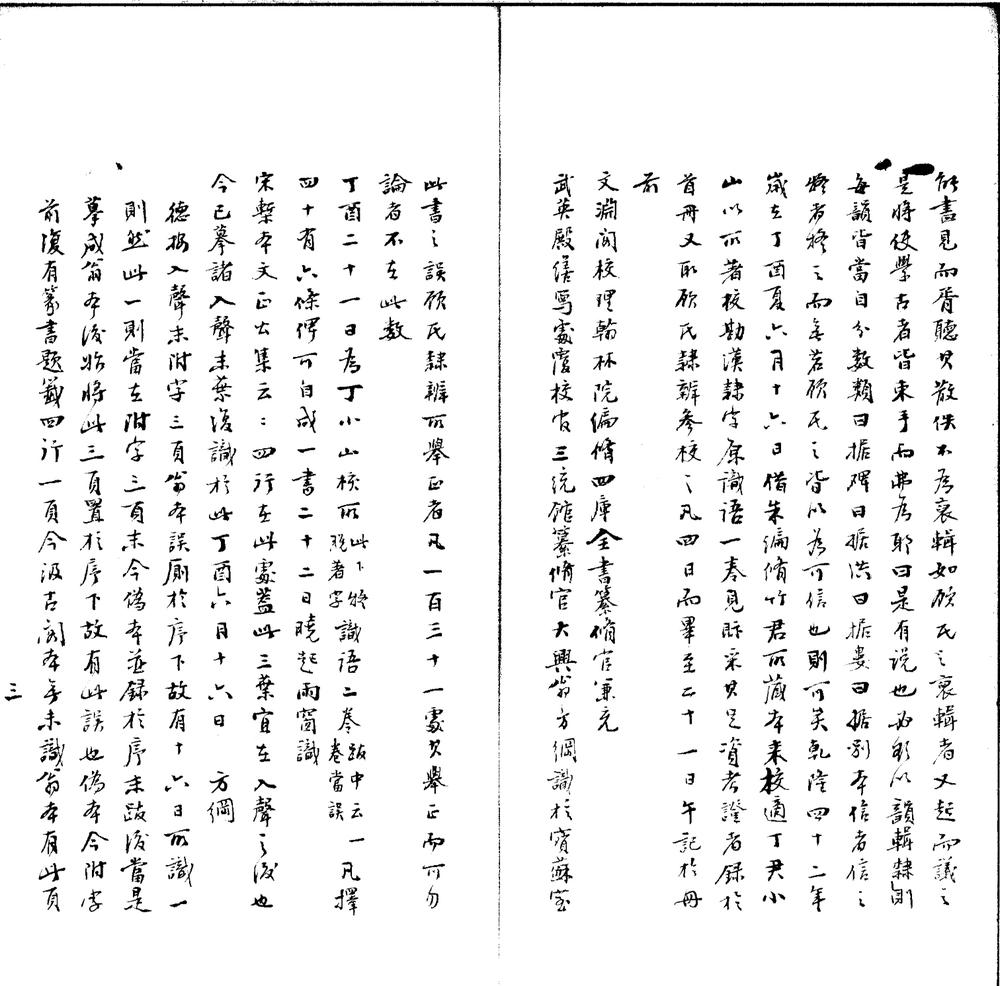 能書見而胥聽其散佚不為裒輯如顧氏之裒輯者又起而議之
是將使學古者皆束手而弗為耶曰是有說也必欲以韻輯隸則
每韻皆當自分數類曰據碑曰據洪曰據婁曰據別本信者信之
疑者疑之而無若顧氏之皆以為可信也則可矣乾隆四十二年
歲在丁酉夏六月十六日借朱編脩竹君所藏本來校適丁尹小
山以所著校勘漢隸字原識語一卷見眎采其足資考證者錄於
首冊又取顧氏隸辨參校之凡四日而畢至二十一日午記於冊
前
文淵閣校理翰林院編脩四庫全書纂脩官兼充
武英殿繕寫處覆校官三統館纂脩官大興翁方綱識於寶蘇室
此書之誤顧氏隸辨所舉正者凡一百三十一處其舉正而可勿
論者不在此數
丁酉二十一日為丁小山校所此下疑脫者字識語二卷跋中云一卷當誤凡擇
四十有六條便可自成一書二十二日曉起雨窗識
宋槧本文正公集云云四行在此處蓋此三葉宜在入聲之後也
今已摹諸入聲末葉後識於此丁酉六月十六日 方綱
德按入聲末附字三頁翁本誤厠於序下故有十六日所識一
則然此一則當在附字三頁末今僞本並錄於序末跋後當是
摹成翁本後始將此三頁置於序下故有此誤也僞本今附字
前復有篆書題籤四行一頁今汲古閣本無未識翁本有此頁
三